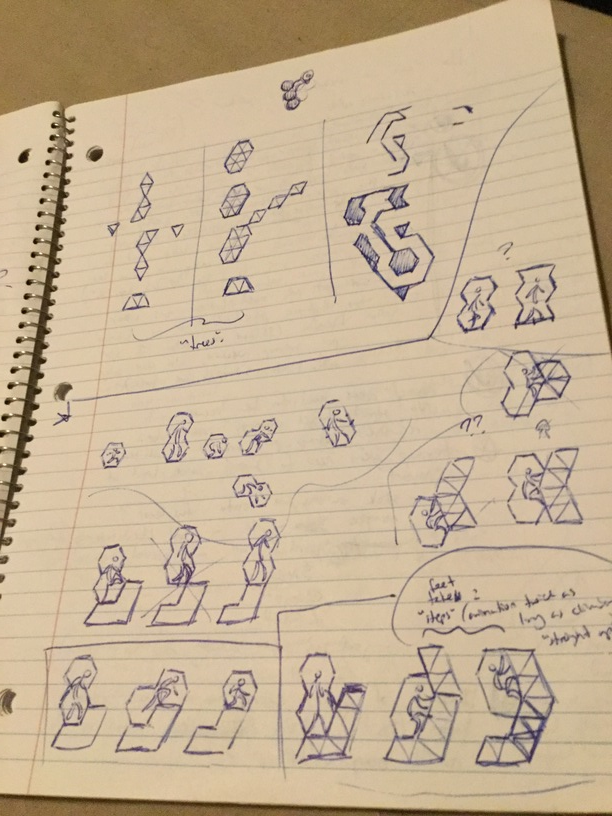 "trees"
?
??
?
feet
"steps" (animation twice as
long as climbing
"straight up"